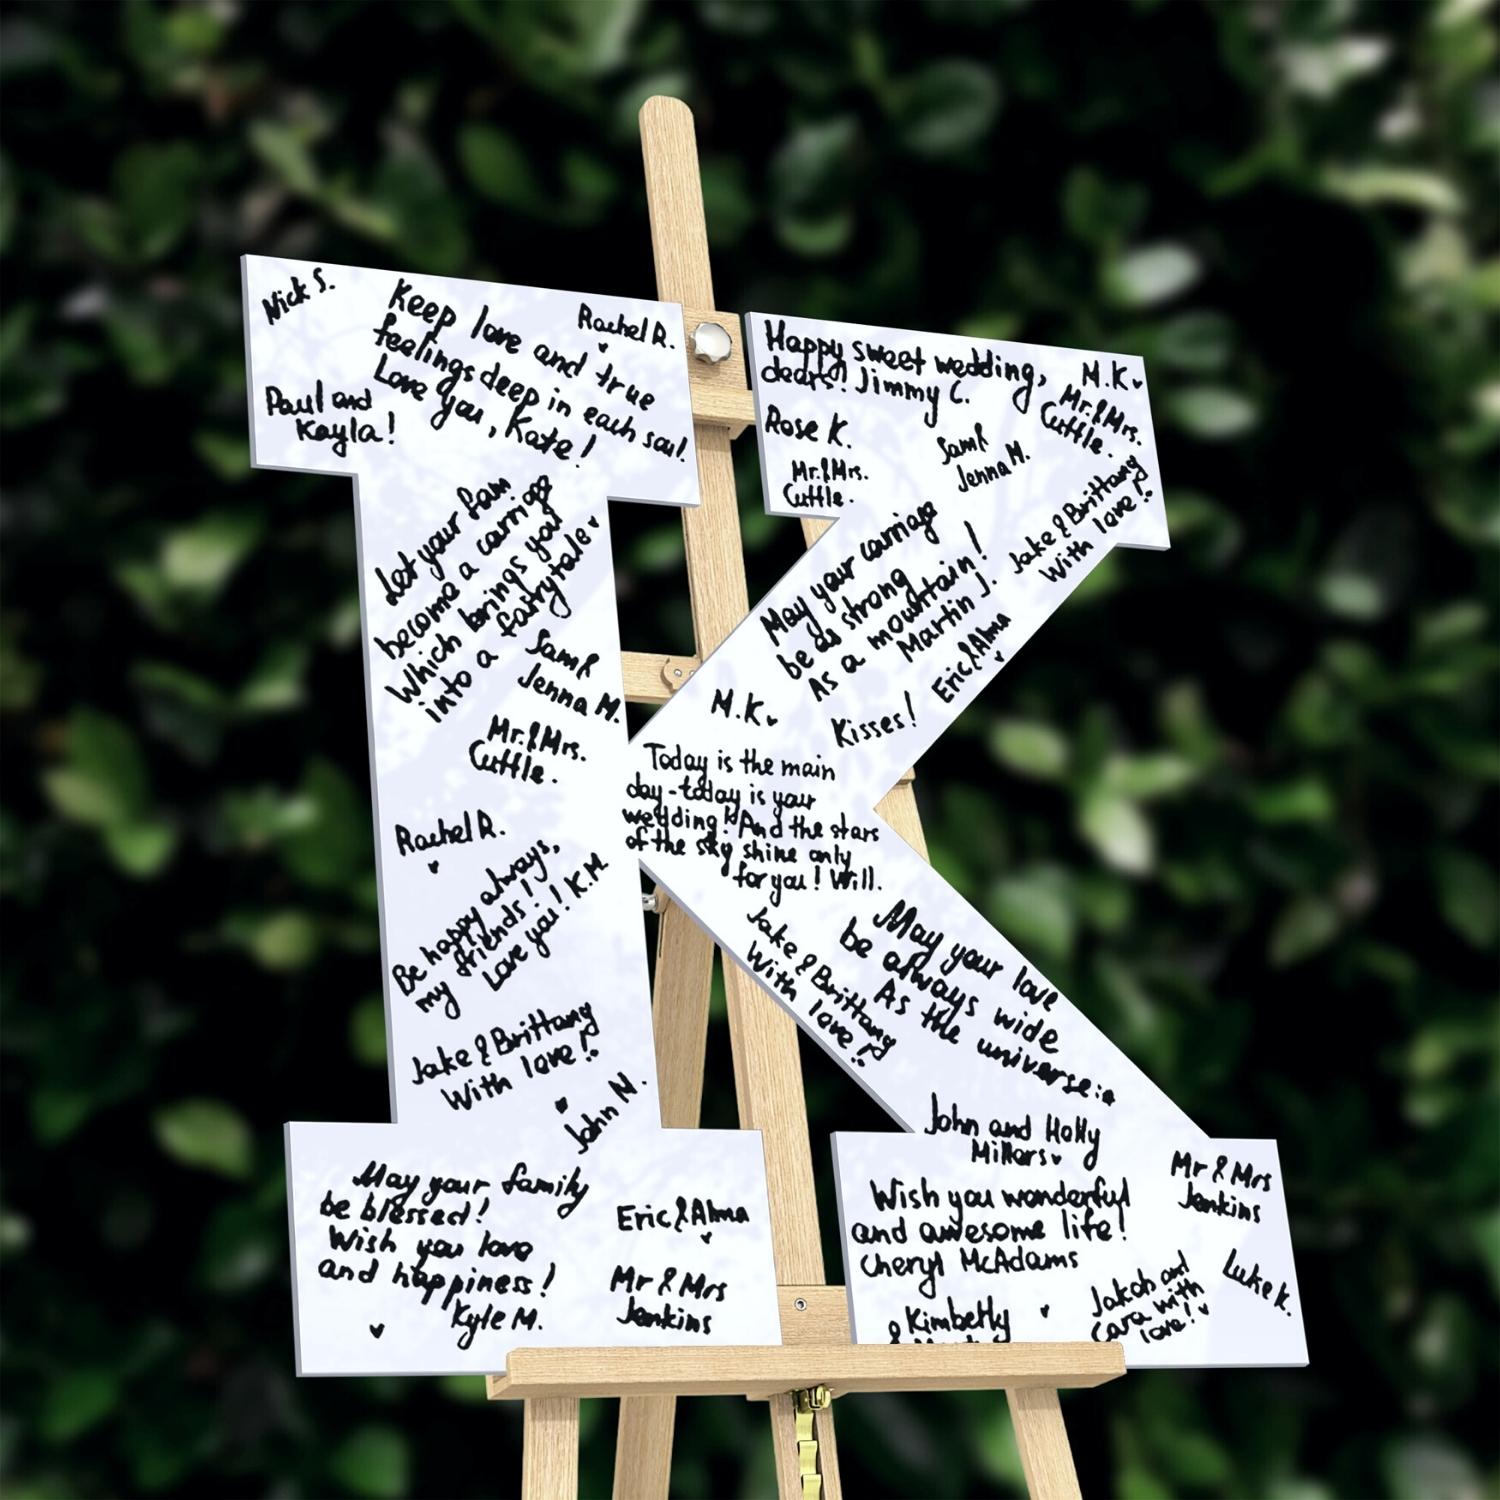 Nick S.
Keep love and true
feelings deep in each soul!
Love you, Kate!
Rachel R.
Paul and
Kayla!
Let your fam
become a carriage
Which brings you
into a fairytale
Sam &
Jenna M.
Mr. & Mrs.
Cuttle.
Rachel R.
Be happy always,
my friends!
Love you! K.M.
Jake & Brittany
With love!
John N.
May your family
be blessed!
Wish you love
and happiness!
Kyle M.
Eric & Alma
Mr & Mrs
Jenkins
Happy sweet wedding,
dears! Jimmy C.
M.K.
Mr. & Mrs.
Cuttle.
Rose K.
Mr. & Mrs.
Cuttle.
Sam &
Jenna M.
Jake & Brittany
With love!
May your carriage
be as strong
As a mountain!
Martin J.
Eric & Alma
Kisses!
M.K.
Today is the main
day - today is your
wedding! And the stars
of the sky shine only
for you! Will.
Jake & Brittany
With love!
May your love
be always wide
As the universe:
John and Holly
Millers
Mr & Mrs
Jenkins
Wish you wonderful
and awesome life!
Cheryl McAdams
Luke K.
Jakob and
Cara with
love!
Kimberly
&